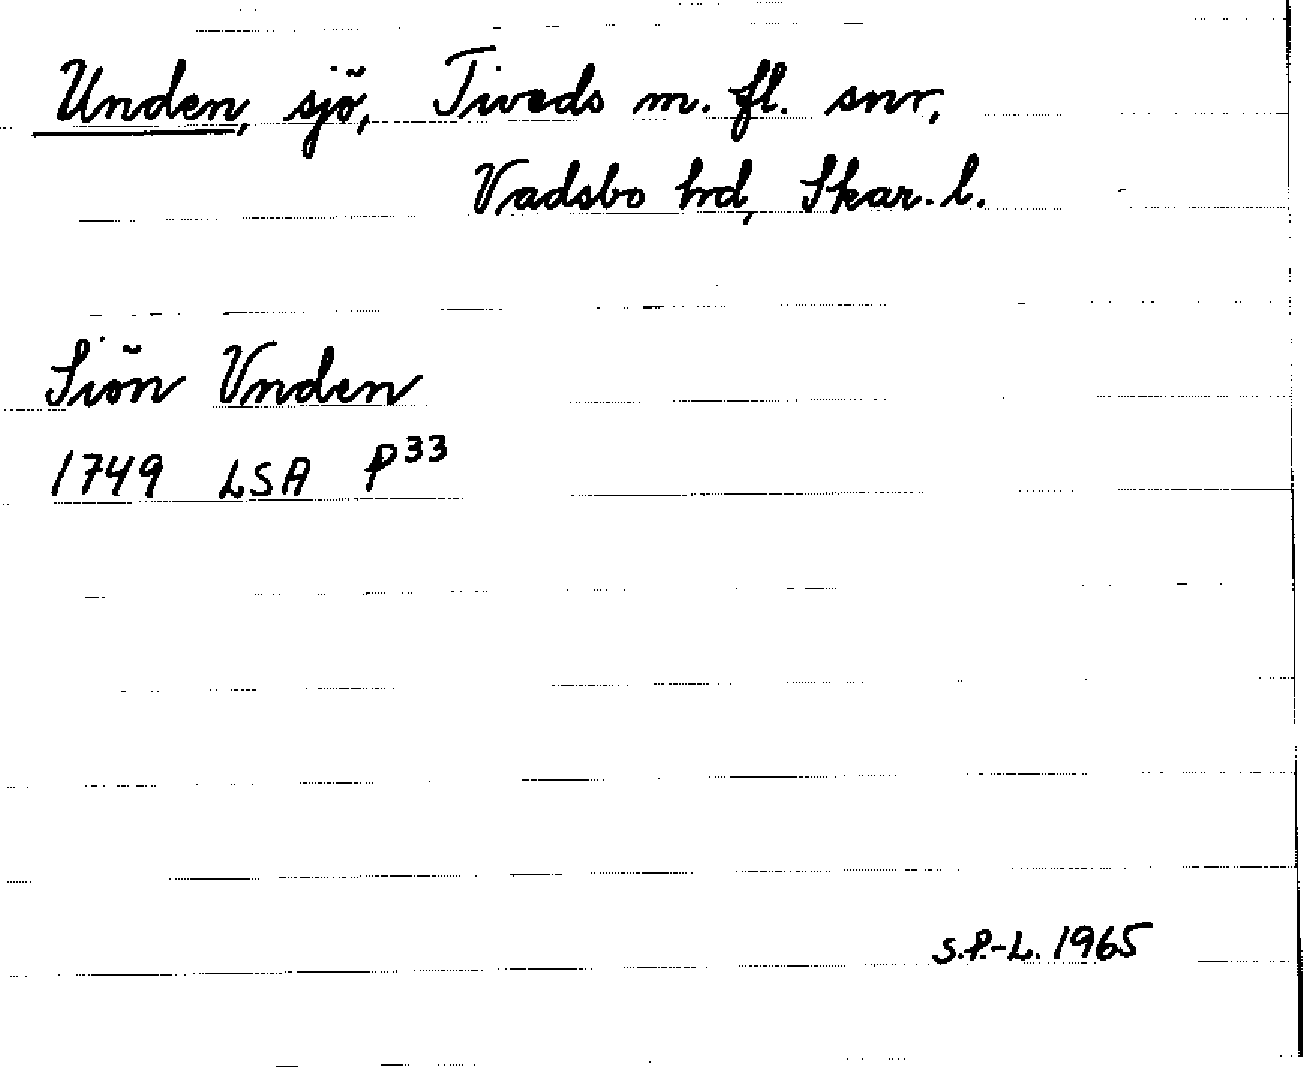 Unden, sjö, Tiveds m. fl. snr,
Vadsbo hd, Skar. l.
Siön Vnden
1749 LSA P33
S.P.-L. 1965